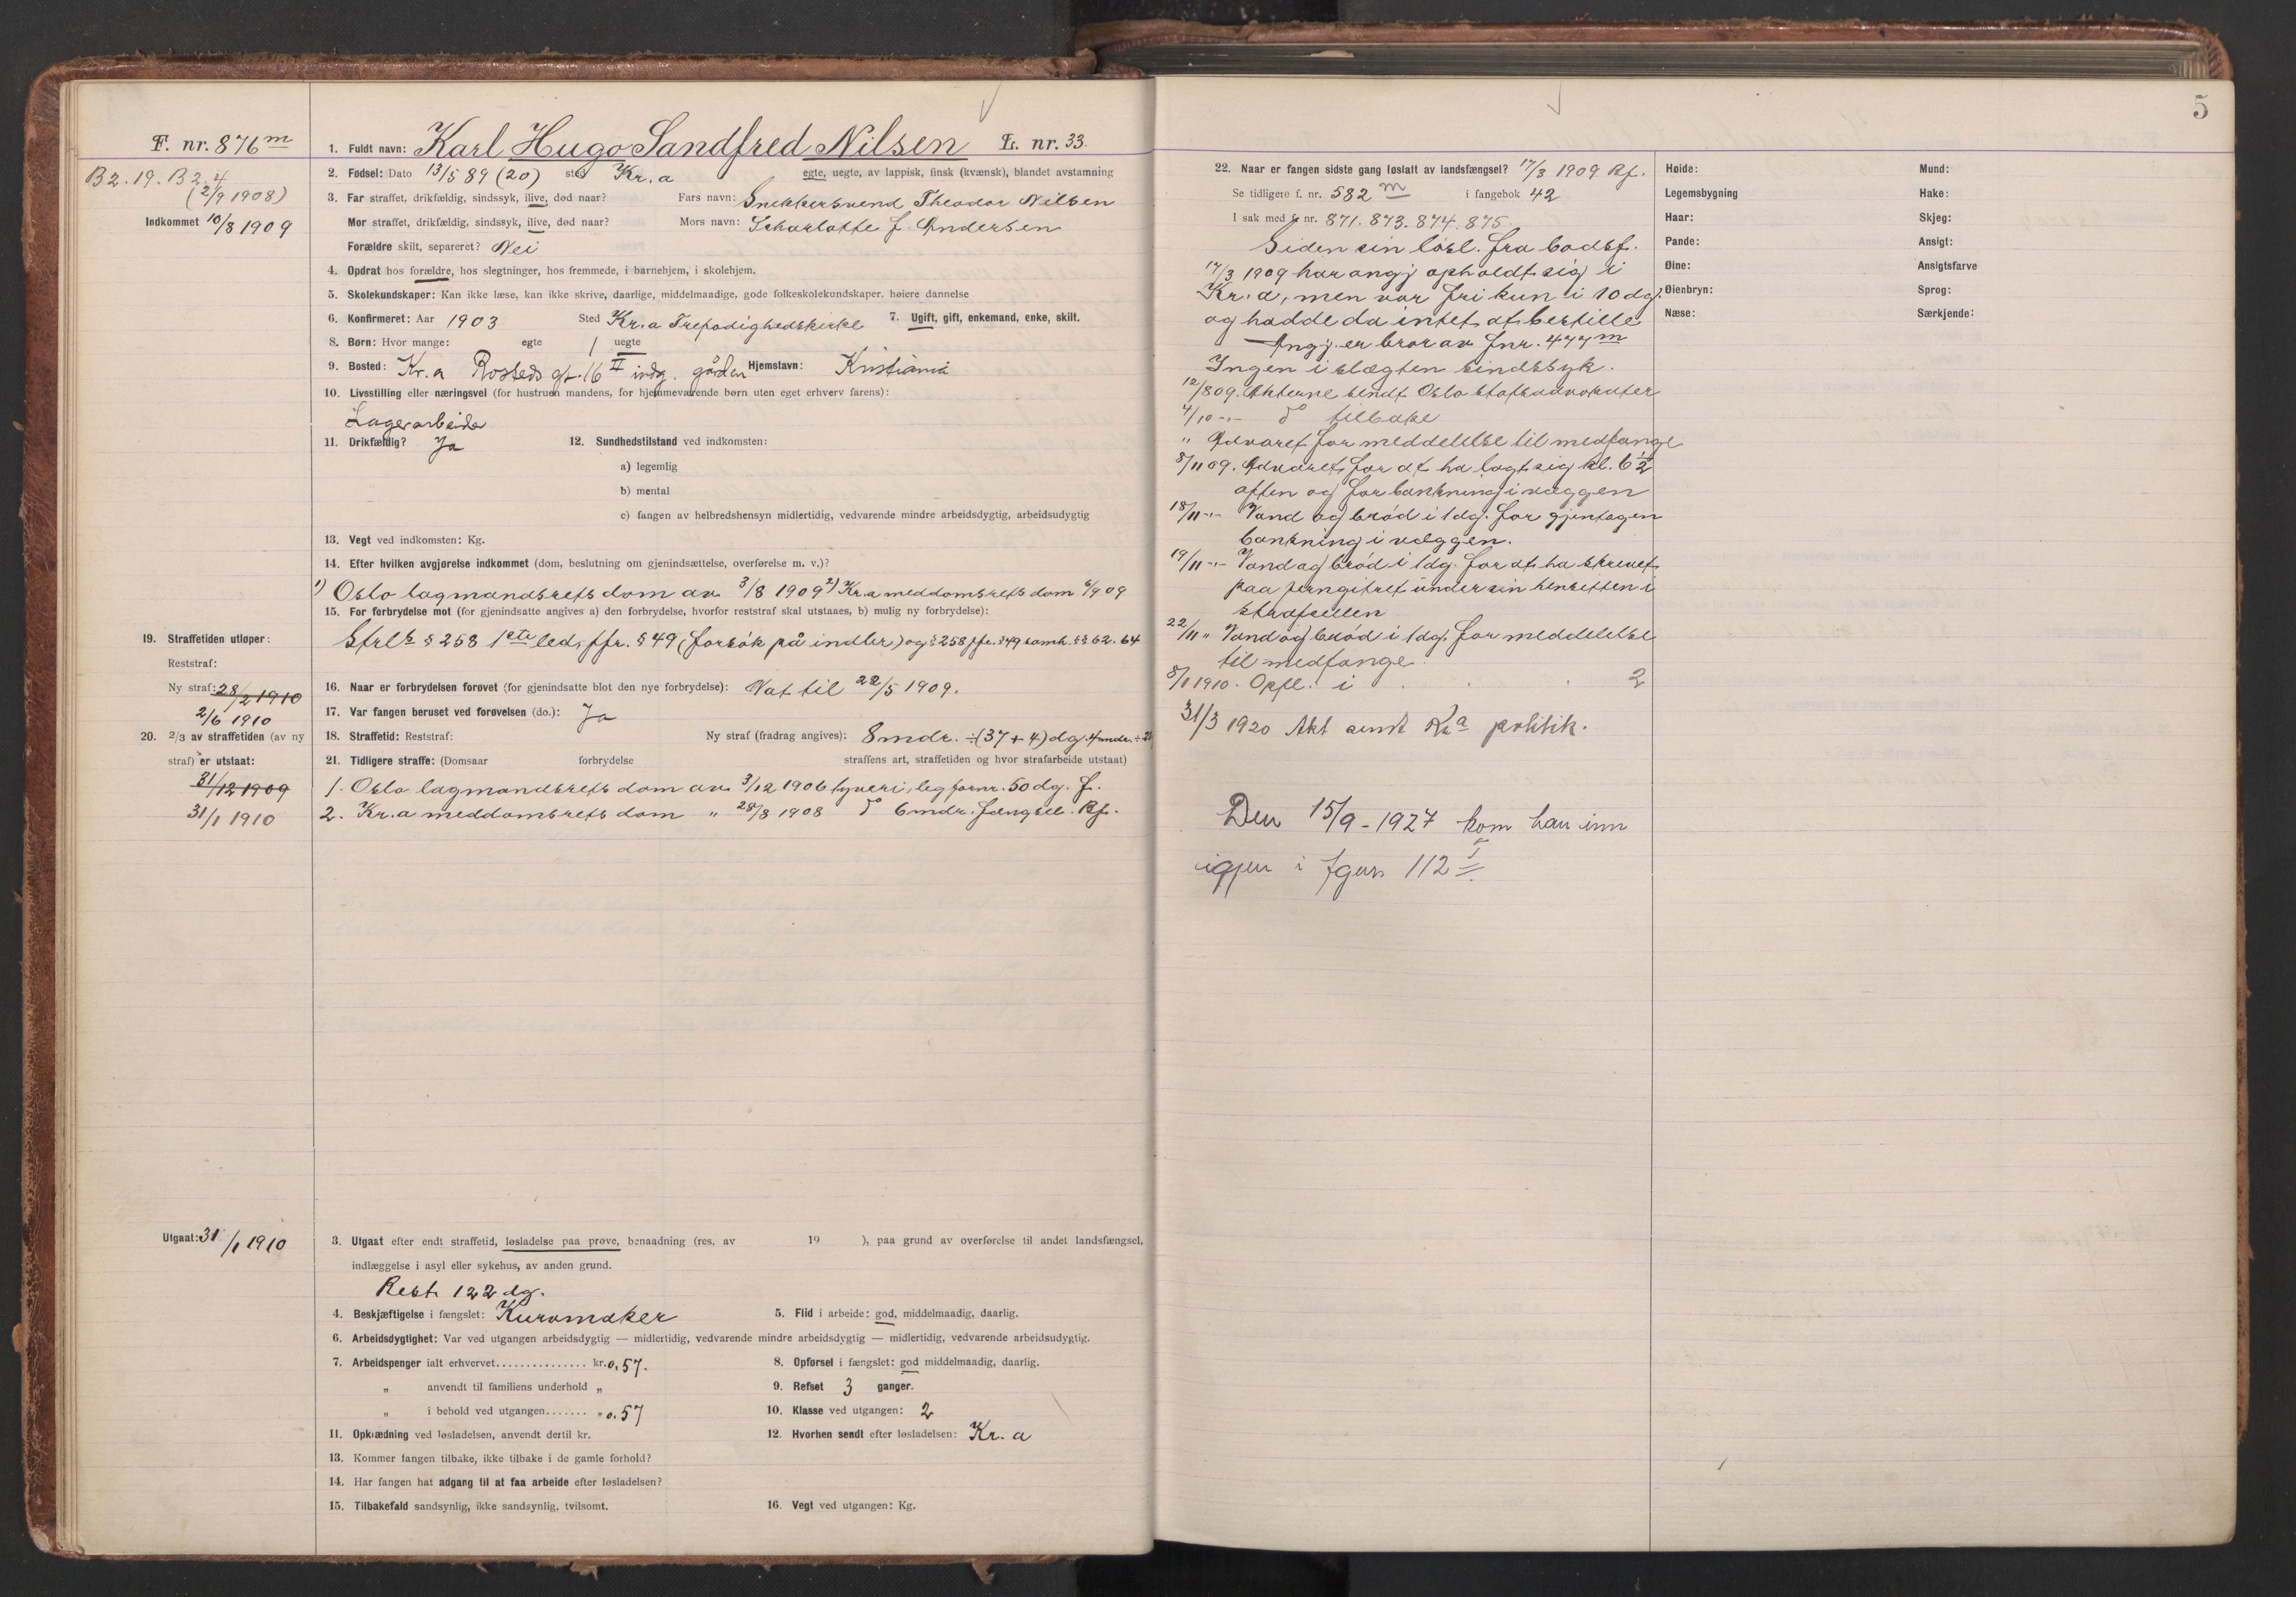 F. nr. 876 m
B2.19. B2.4
(2/9 1908)
Indkommet 10/8 1909
1. Fuldt navn: Karl Hugo Sandfred Nilsen L. nr. 33.
2. Fødsel: Dato 13/5 89 (20) sted Kr.a egte, uegte, av lappisk, finsk (kvænsk), blandet avstamning
3. Far straffet, drikfældig, sindssyk, ilive, død naar? Fars navn: Snekkersvend Theodor Nilsen
Mor straffet, drikfældig, sindssyk, ilive, død naar? Mors navn: Scharlotte J. Andersen
Forældre skilt, separeret? Nei
4. Opdrat hos forældre, hos slegtninger, hos fremmede, i barnehjem, i skolehjem.
5. Skolekundskaper: Kan ikke læse, kan ikke skrive, daarlige, middelmaadige, gode folkeskolekundskaper, høiere dannelse
6. Konfirmeret: Aar 1903 Sted Kr.a Trefodighedskirke 7. Ugift, gift, enkemand, enke, skilt.
8. Børn: Hvor mange: egte 1 uegte
9. Bosted: Kr.a Rosteds gt. 16 II indg. gården Hjemstavn: Kristiania
10. Livsstilling eller næringsvei (for hustruen mandens, for hjemmeværende børn uten eget erhverv farens):
Lagerarbeider
11. Drikfældig? Ja 12. Sundhedstilstand ved indkomsten:
a) legemlig
b) mental
c) fangen av helbredshensyn midlertidig, vedvarende mindre arbeidsdygtig, arbeidsudygtig
13. Vegt ved indkomsten: Kg.
14. Efter hvilken avgjørelse indkommet (dom, beslutning om gjenindsættelse, overførelse m. v.)?
1) Oslo lagmandsrets dom av 3/8 1909 2) Kr.a meddomsrets dom 6/9 09
15. For forbrydelse mot (for gjenindsatte angives a) den forbrydelse, hvorfor reststraf skal utstaaes, b) mulig ny forbrydelse):
Strl § 258 1ste led, jfr. § 49 (forsøk på indbr) og § 258 jfr. § 49 samh. §§ 62. 64
19. Straffetiden utløper:
Reststraf:
Ny straf: 28/2 1910
2/6 1910
16. Naar er forbrydelsen forøvet (for gjenindsatte blot den nye forbrydelse): Nat til 22/5 1909.
17. Var fangen beruset ved forøvelsen (do.): Ja
20. 2/3 av straffetiden (av ny
straf) er utstaat:
31/12 1909
31/1 1910
18. Straffetid: Reststraf: Ny straf (fradrag angives): 8 mdr. ÷ (37 + 4) dg. 4 mdr. ÷
21. Tidligere straffe: (Domsaar forbrydelse straffens art, straffetiden og hvor strafarbeide utstaat)
1. Oslo lagmandsrets dom av 3/12 1906 tyveri, leg fornr. 50 dg. f.
2. Kr.a meddomsrets dom " 28/8 1908 do 6 mdr. fængsel. Bf.
Utgaat: 31/1 1910
3. Utgaat efter endt straffetid, løsladelse paa prøve, benaadning (res. av 19 ), paa grund av overførelse til andet landsfængsel,
indlæggelse i asyl eller sykehus, av anden grund.
Rest 122 dg.
4. Beskjæftigelse i fængslet: Kurvmaker 5. Flid i arbeide: god, middelmaadig, daarlig.
6. Arbeidsdygtighet: Var ved utgangen arbeidsdygtig — midlertidig, vedvarende mindre arbeidsdygtig — midlertidig, vedvarende arbeidsudygtig.
7. Arbeidspenger ialt erhvervet............... kr. 0,57. 8. Opførsel i fængslet: god middelmaadig, daarlig.
" anvendt til familiens underhold " 9. Refset 3 ganger.
" i behold ved utgangen....... " 0.57 10. Klasse ved utgangen: 2
11. Opklædning ved løsladelsen, anvendt dertil kr. 12. Hvorhen sendt efter løsladelsen: Kr. a
13. Kommer fangen tilbake, ikke tilbake i de gamle forhold?
14. Har fangen hat adgang til at faa arbeide efter løsladelsen?
15. Tilbakefald sandsynlig, ikke sandsynlig, tvilsomt. 16. Vegt ved utgangen: Kg.
5
22. Naar er fangen sidste gang løslatt av landsfængsel? 17/3 1909 Bf.
Se tidligere f. nr. 582 m i fangebok 42
I sak med f. nr. 871. 873. 874. 875.
Siden sin løsl. fra bodsf.
17/3 1909 har angj opholdt sig i
Kr.a, men var fri kun i 10 dg.
og hadde da intet at bestille
Angj. er bror av fnr. 477 m
Ingen i slægten sindssyk.
12/8 09. Akterne sendt Oslo statsadvokater
4/10 -"- do tilbake
" Advaret for meddelelse til medfange
8/11 09. Advaret for at ha lagt sig kl. 6 1/2
aften og for bankning i væggen
18/11 -"- Vand og brød i 1 dg. for gjentagen
bankning i væggen.
19/11 -"- Vand og brød i 1 dg. for at ha skrevet
paa jerngitret under sin hensetten i
strafcellen
22/11 " Vand og brød i 1 dg. for meddelelse
til medfange.
8/1 1910. Opfl. i . . . 2
31/3 1920 Akt sendt Kr.a politik.
Den 15/9 - 1927 kom han inn
igjen i fgnr. 112 I
Høide: Mund:
Legemsbygning Hake:
Haar: Skjeg:
Pande: Ansigt:
Øine: Ansigtsfarve
Øienbryn: Sprog:
Næse: Særkjende: